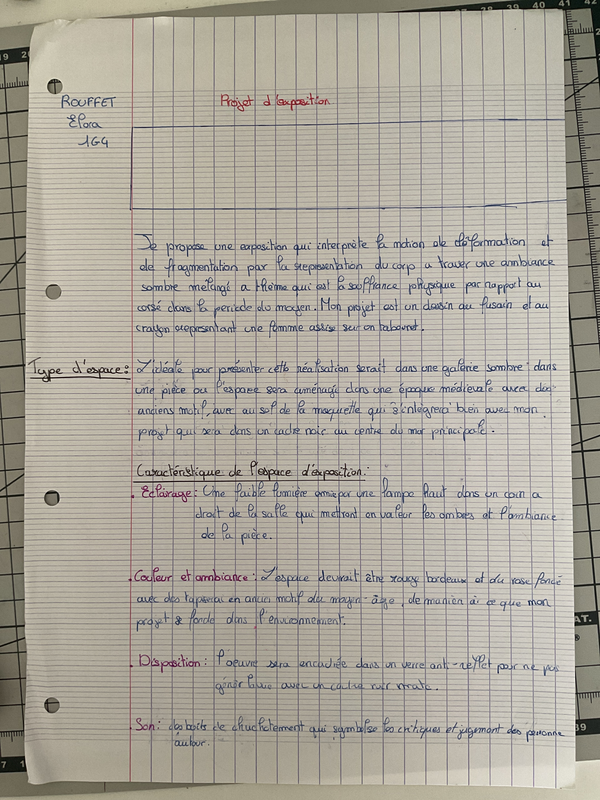 ROUFFET
Elora
1G4
Projet d'exposition
Je propose une exposition qui interprète la notion de déformation et
de fragmentation par la représentation du corp a traver une ambiance
sombre mélangé a thème qui est la souffrance physique par rapport au
corsé dans la periode du moyen. Mon projet est un dessin au fusain et au
crayon représentant une femme assise sur un tabouret.
Type d'espace:
L'idéale pour présenter cette réalisation serait dans une galerie sombre dans
une pièce ou l'espace sera aménagé dans une époque médiévale avec des
anciens motif, avec au sol de la moquette qui s'intègrera bien avec mon
projet qui sera dans un cadre noir au centre du mur principale.
Caractéristique de l'espace d'exposition:
. Eclairage: Une faible lumière par une lampe haut dans un coin a
droit de la salle qui mettront en valeur les ombres et l'ambiance
de la pièce.
. Couleur et ambiance: L'espace devrait être rouge bordeaux et du rose foncé
avec des tapisserai en ancien motif du moyen-âge, de manière à ce que mon
projet se fonde dans l'environnement.
. Disposition: l'oeuvre sera encadrée dans un verre anti-reflet pour ne pas
gêner avec un cadre noir mate.
. Son: des bruits de chuchotement qui symbolise les critiques et jugement des personne
autour.
39 40 41 42
19